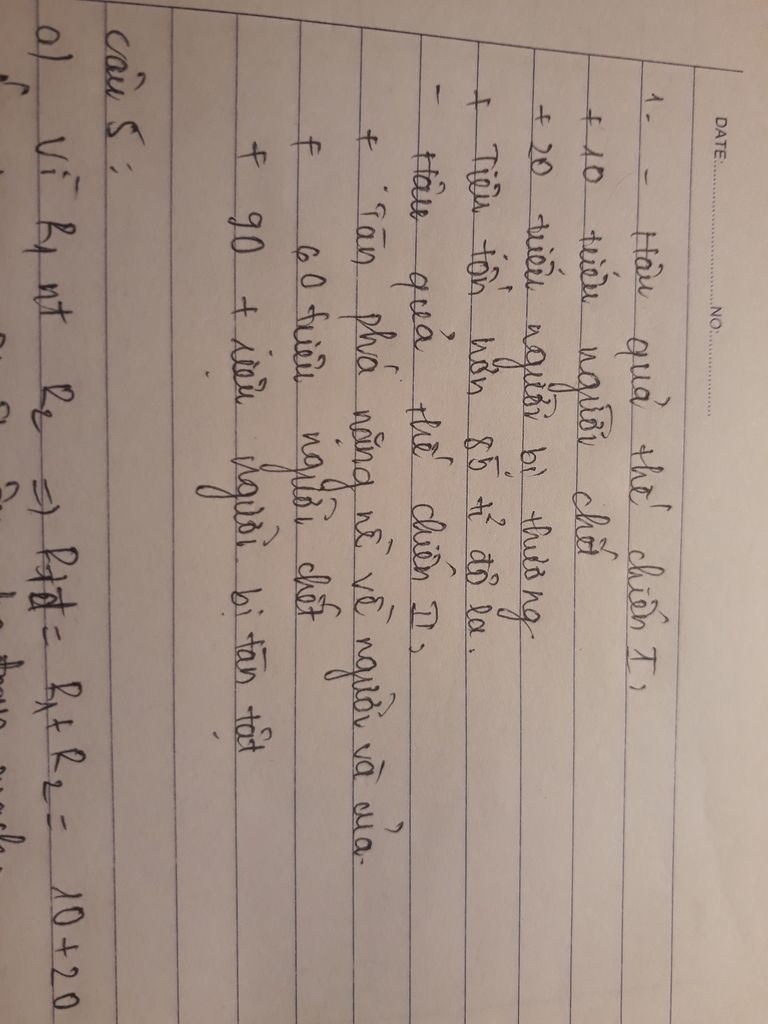 DATE:....................NO:..............
1. - Hâu quả thế chiến I,
+ 10 triêu người chết
+ 20 triêu người bị thương
+ Tiêu tốn hơn 85 tỉ đô la.
- Hâu quả thế chiến II,
+ Tàn phá nặng nề về người và của.
+ 60 triêu người chết
+ 90 triệu người bị tàn tật
câu 5:
a) Vì R1 nt R2 => Rtđ = R1 + R2 = 10 + 20